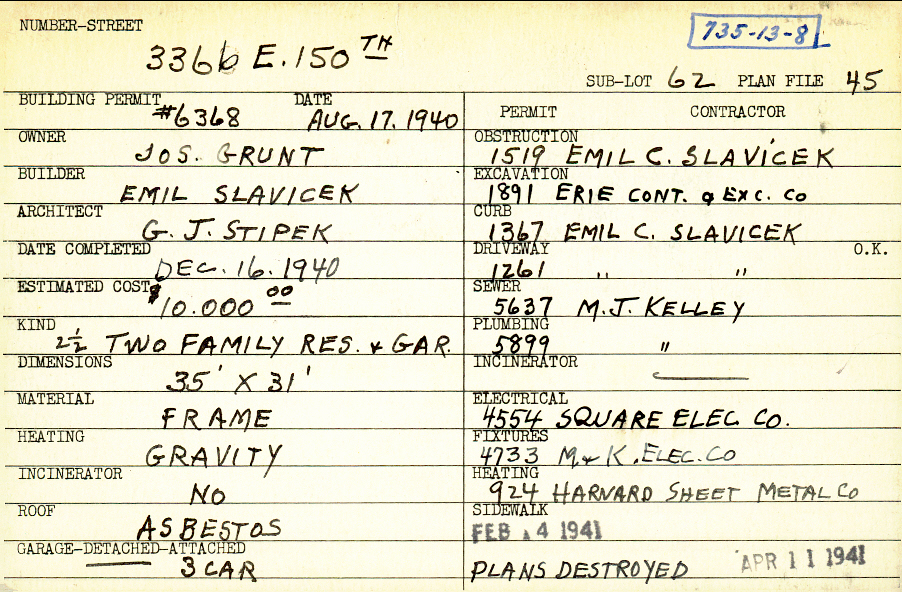 NUMBER-STREET
735-13-8
3366 E. 150 TH
SUB-LOT 62 PLAN FILE 45
BUILDING PERMIT #6368 DATE AUG. 17. 1940
OWNER
JOS. GRUNT
BUILDER
EMIL SLAVICEK
ARCHITECT
G. J. STIPEK
DATE COMPLETED
DEC. 16. 1940
ESTIMATED COST
$10.000 00
KIND
2½ TWO FAMILY RES. & GAR.
DIMENSIONS
35' X 31'
MATERIAL
FRAME
HEATING
GRAVITY
INCINERATOR
NO
ROOF
ASBESTOS
GARAGE-DETACHED-ATTACHED
3 CAR
PERMIT CONTRACTOR
OBSTRUCTION
1519 EMIL C. SLAVICEK
EXCAVATION
1891 ERIE CONT. & EXC. CO
CURB
1367 EMIL C. SLAVICEK
DRIVEWAY O.K.
1261 " "
SEWER
5637 M.J. KELLEY
PLUMBING
5899 "
INCINERATOR
ELECTRICAL
4554 SQUARE ELEC. CO.
FIXTURES
4733 M & K. ELEC. CO
HEATING
924 HARNARD SHEET METAL CO
SIDEWALK
FEB 14 1941
PLANS DESTROYED APR 11 1941